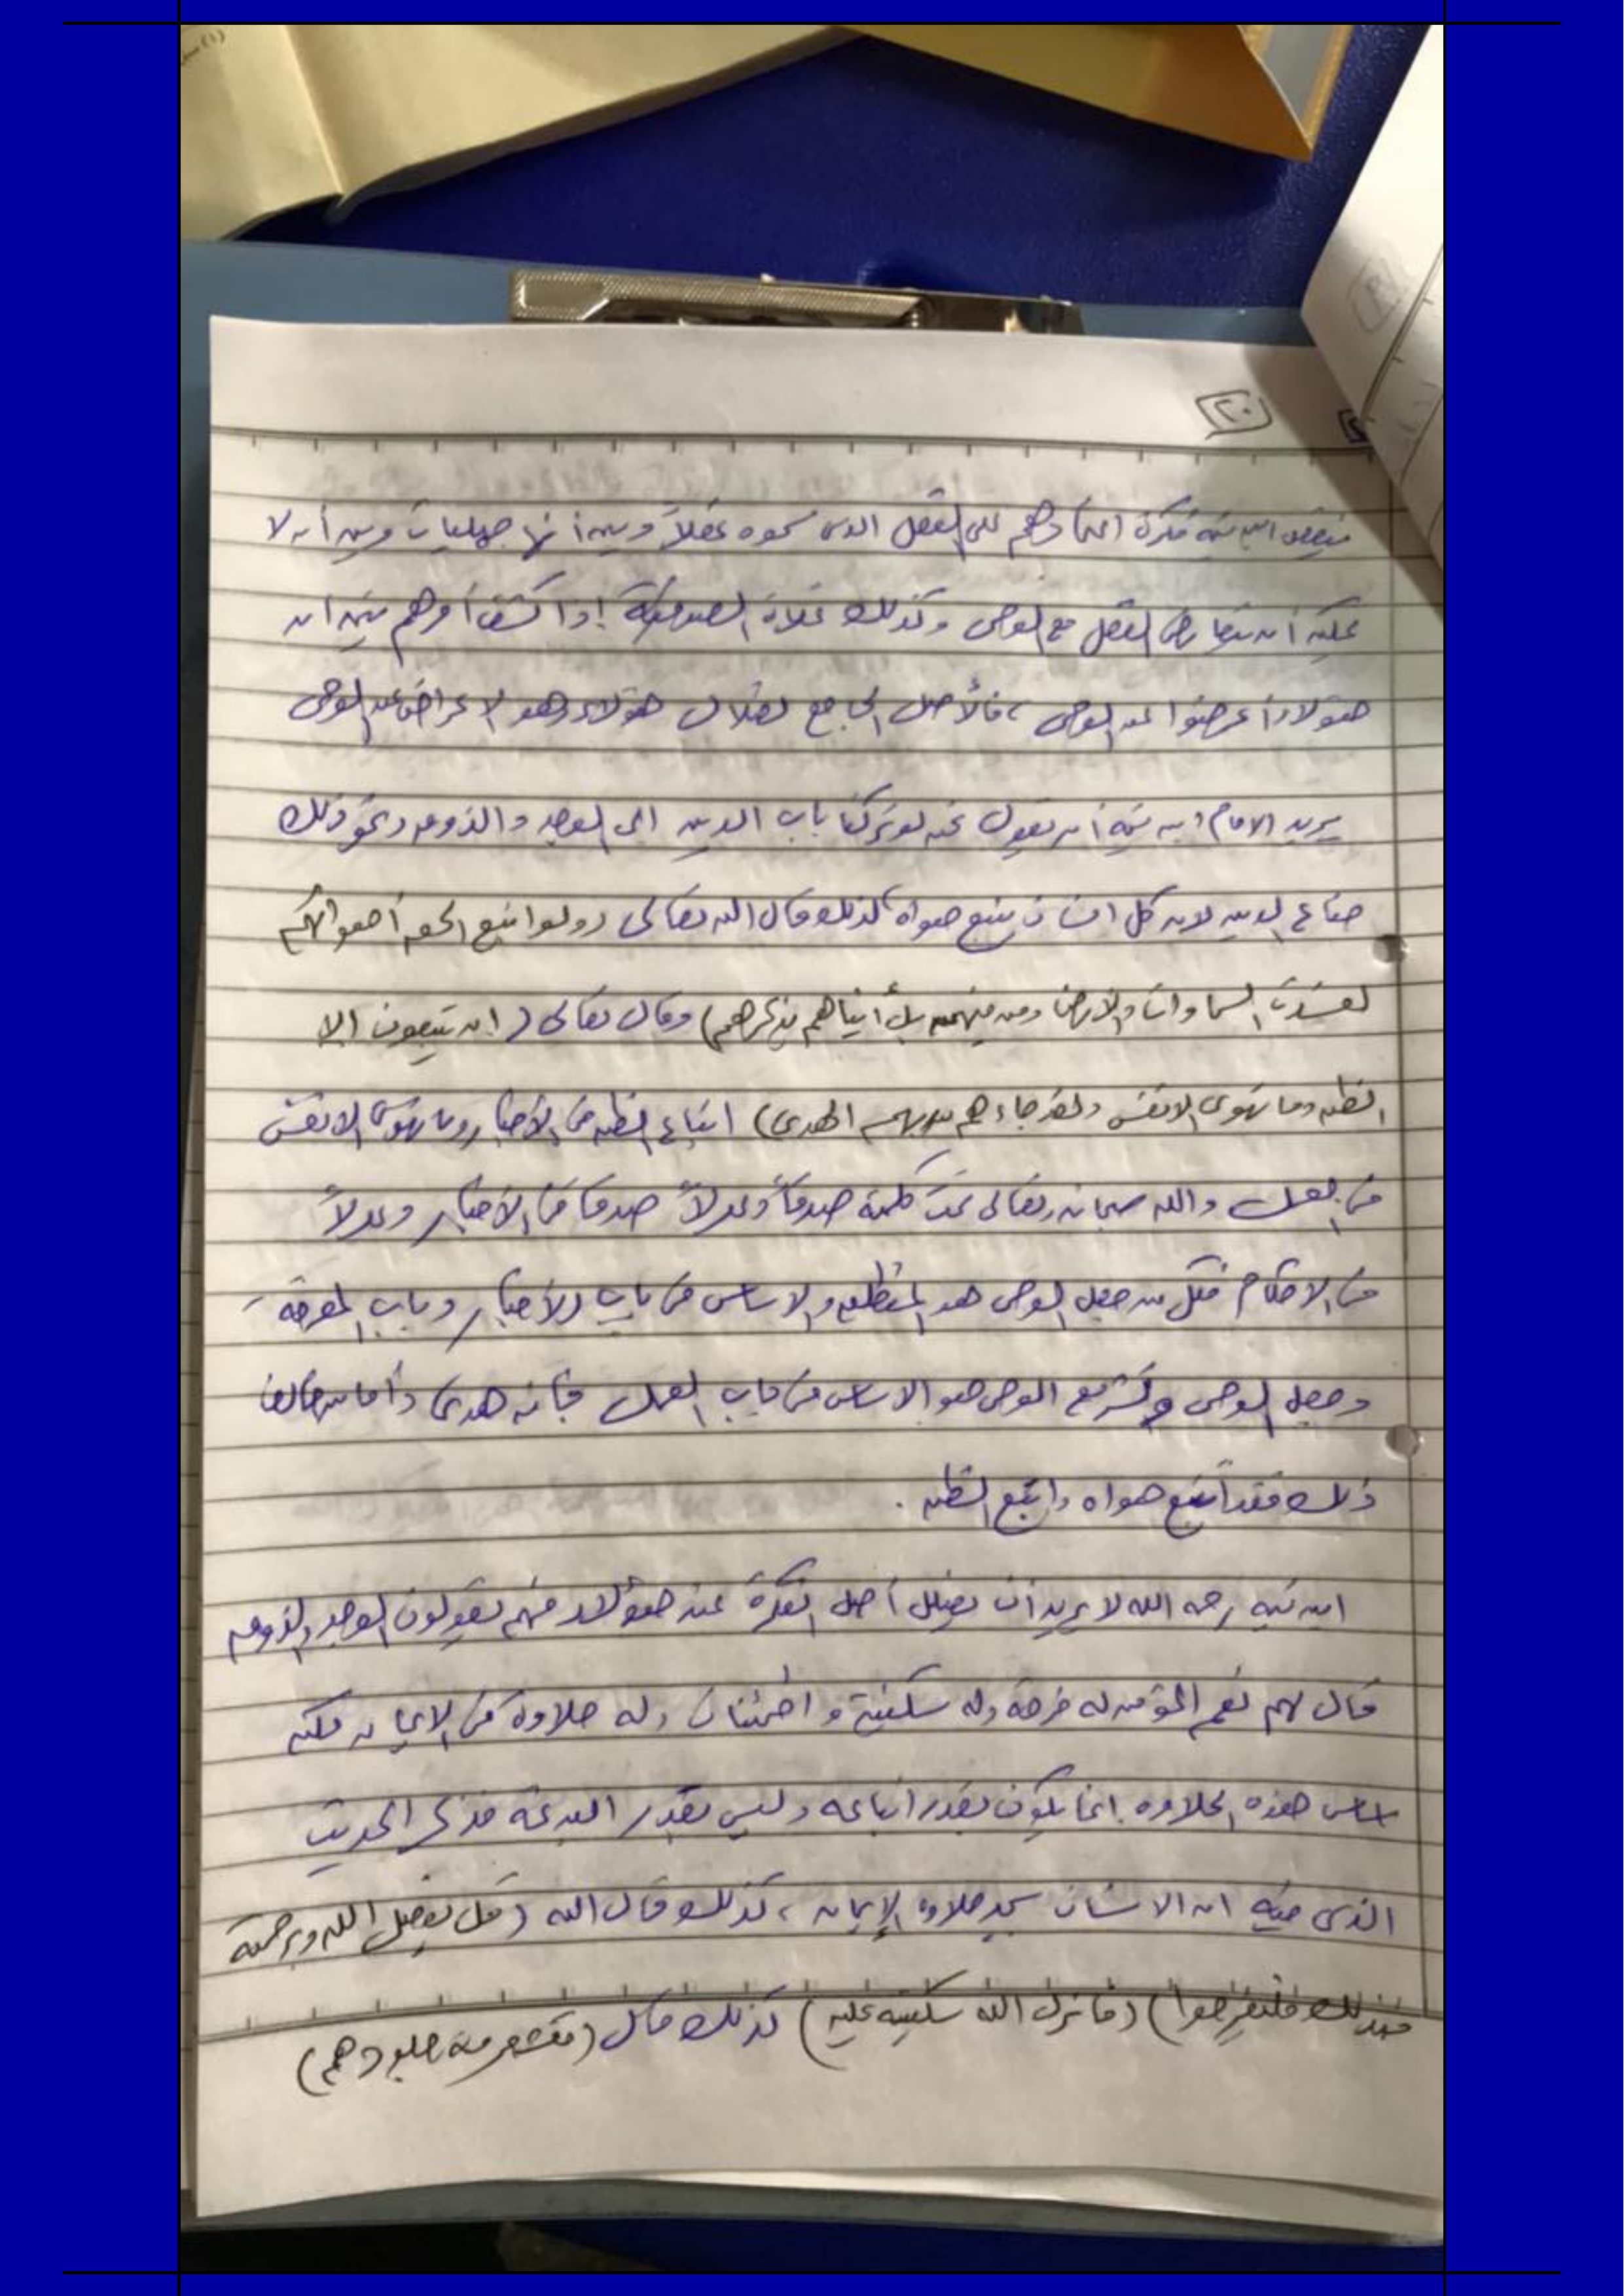 ٢٠
فينقض ابن تيمية فكرة اعتمادهم على العقل الذي سموه عقلاً وبين أنها جهليات وبين أنه لا
يمكن أن يتعارض العقل مع الوحي وكذلك غلاة الصوفية إذا كشف أمرهم تبين ان
هؤلاء أعرضوا عن الوحي ، فالأصل الجامع لضلال هؤلاء وهو الإعراض عن الوحي
يريد الامام ابن تيمية أن يقول نحن لو تركنا باب الدين الى الوجد والذوق ونحو ذلك
ضاع الدين لان كل انسان يتبع هواه لذلك قال الله تعالى (ولو اتبع الحق أهوائهم
لفسدت السماوات والارض ومن فيهن بل أتيناهم بذكرهم) وقال تعالى (ان يتبعون الا
الظن وما تهوى الانفس ولقد جاءهم من ربهم الهدى) اتباع الظن في الأخبار وما تهوى الانفس
في العمل والله سبحانه وتعالى تمت كلمته صدقاً وعدلاً صدقا في الأخبار وعدلاً
في الاحكام فكل من جعل الوحي هو المنطلق والاساس في باب الأخبار وباب المعرفة
وجعل الوحي وتشريع الوحي هو الاساس في باب العمل فإنه هدى وأما من خالف
ذلك فقد اتبع هواه واتبع الظن .
ابن تيمية رحمه الله لا يريد أن يضلل أصل الفكرة عند هؤلاء فهم يقولون الوجد والذوق
قال لهم نعم المؤمن له فرحة وله سكينة واطمئنان وله حلاوة في الايمان لكن
أساس هذه الحلاوة انما يكون بقدر اتباعه وليس بقدر البدعة فذكر الحديث
الذي فيه ان الانسان يجد حلاوة الإيمان ، كذلك قال الله (قل بفضل الله وبرحمته
فبذلك فليفرحوا) (فأنزل الله سكينته عليه) كذلك قال (تقشعر منه جلودهم)